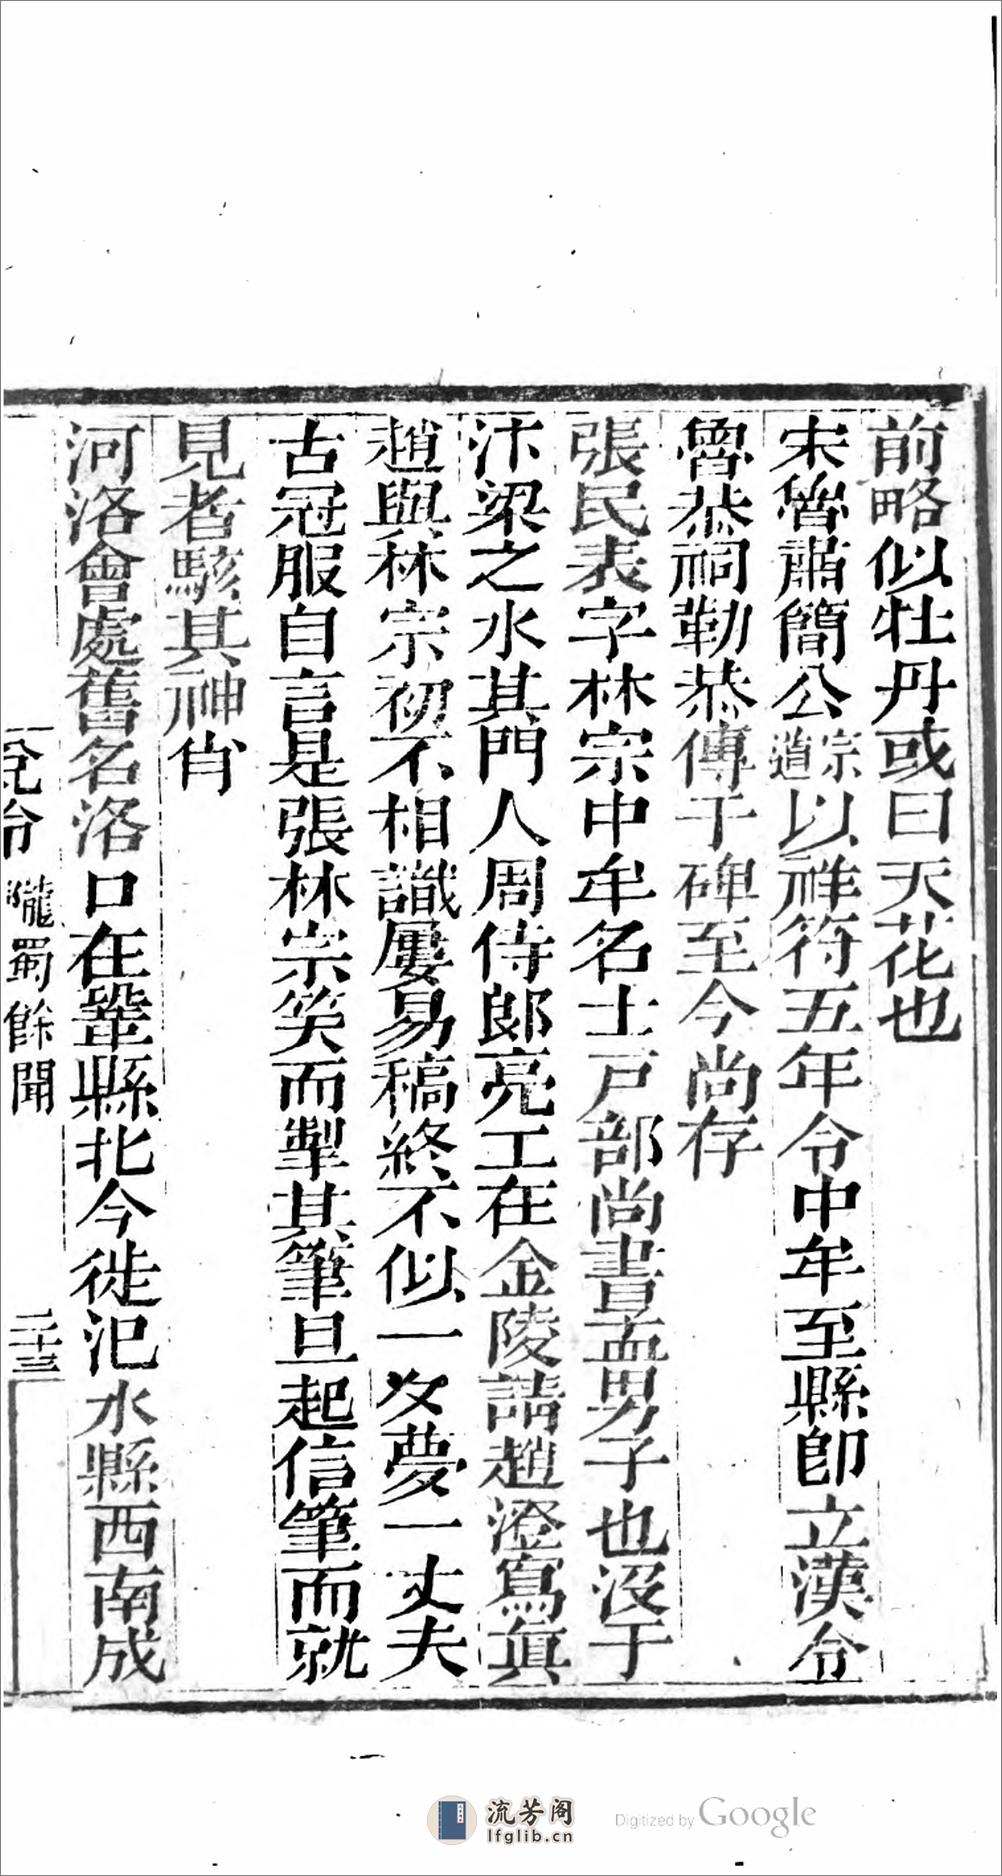 前略似牡丹或曰天花也
宋魯肅簡公宗道以祥符五年令中牟至縣卽立漢令
魯恭祠勒恭傳于碑至今尚存
張民表字林宗中牟名士戸部尚書孟男子也沒于
汴梁之水其門人周侍郎亮工在金陵請趙澄寫眞
趙與林宗初不相識屢易稿終不似一夕夢一丈夫
古冠服自言是張林宗笑而掣其筆旦起信筆而就
見者駭其神肖
河洛會處舊名洛口在鞏縣北今徙汜水縣西南成
說鈴 隴蜀餘聞 二十三
流芳阁
lfglib.cn
Digitized by Google